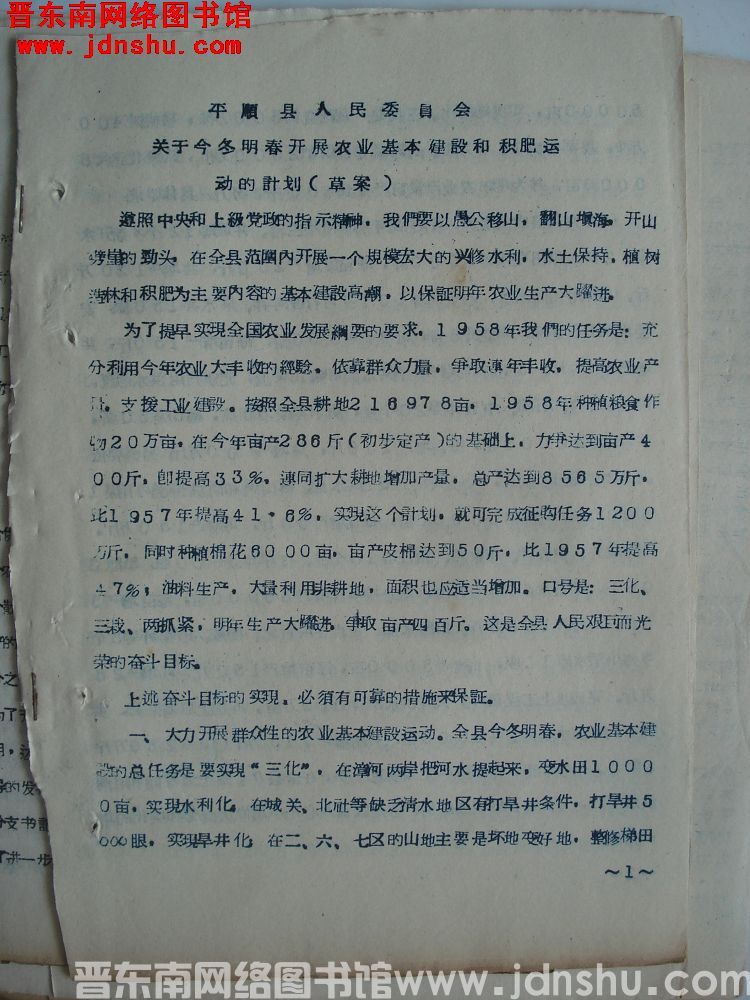 晋东南网络图书馆
www.jdnshu.com
平順县人民委員会
关于今冬明春开展农业基本建設和积肥运
动的計划（草案）
遵照中央和上級党政的指示精神，我們要以愚公移山，翻山塡海，开山
劈崖的勁头，在全县范圍內开展一个規模宏大的兴修水利，水土保持，植树
造林和积肥为主要內容的基本建設高潮，以保証明年农业生产大躍进。
为了提早实現全国农业发展綱要的要求，1958年我們的任务是：充
分利用今年农业大丰收的經驗，依靠群众力量，爭取連年丰收，提高农业产
量，支援工业建設。按照全县耕地216978亩，1958年种植粮食作
物20万亩，在今年亩产286斤（初步定产）的基础上，力爭达到亩产4
00斤，卽提高33%，連同扩大耕地增加产量，总产达到8565万斤，
比1957年提高41·6%，实現这个計划，就可完成征购任务1200
万斤，同时种植棉花6000亩，亩产皮棉达到50斤，比1957年提高
47%；油料生产，大量利用非耕地，面积也应适当增加。口号是：三化、
三栽、两抓紧，明年生产大躍进，爭取亩产四百斤。这是全县人民艰巨而光
荣的奋斗目标。
上述奋斗目标的实現，必須有可靠的措施来保証。
一、大力开展群众性的农业基本建設运动。全县今冬明春，农业基本建
設的总任务是要实現“三化”，在漳河两岸把河水提起来，变水田1000
0亩，实現水利化，在城关、北社等缺乏清水地区有打旱井条件，打旱井5
000眼，实現旱井化，在二、六、七区的山地主要是坏地变好地，整修梯田
～1～
晋东南网络图书馆 www.jdnshu.com